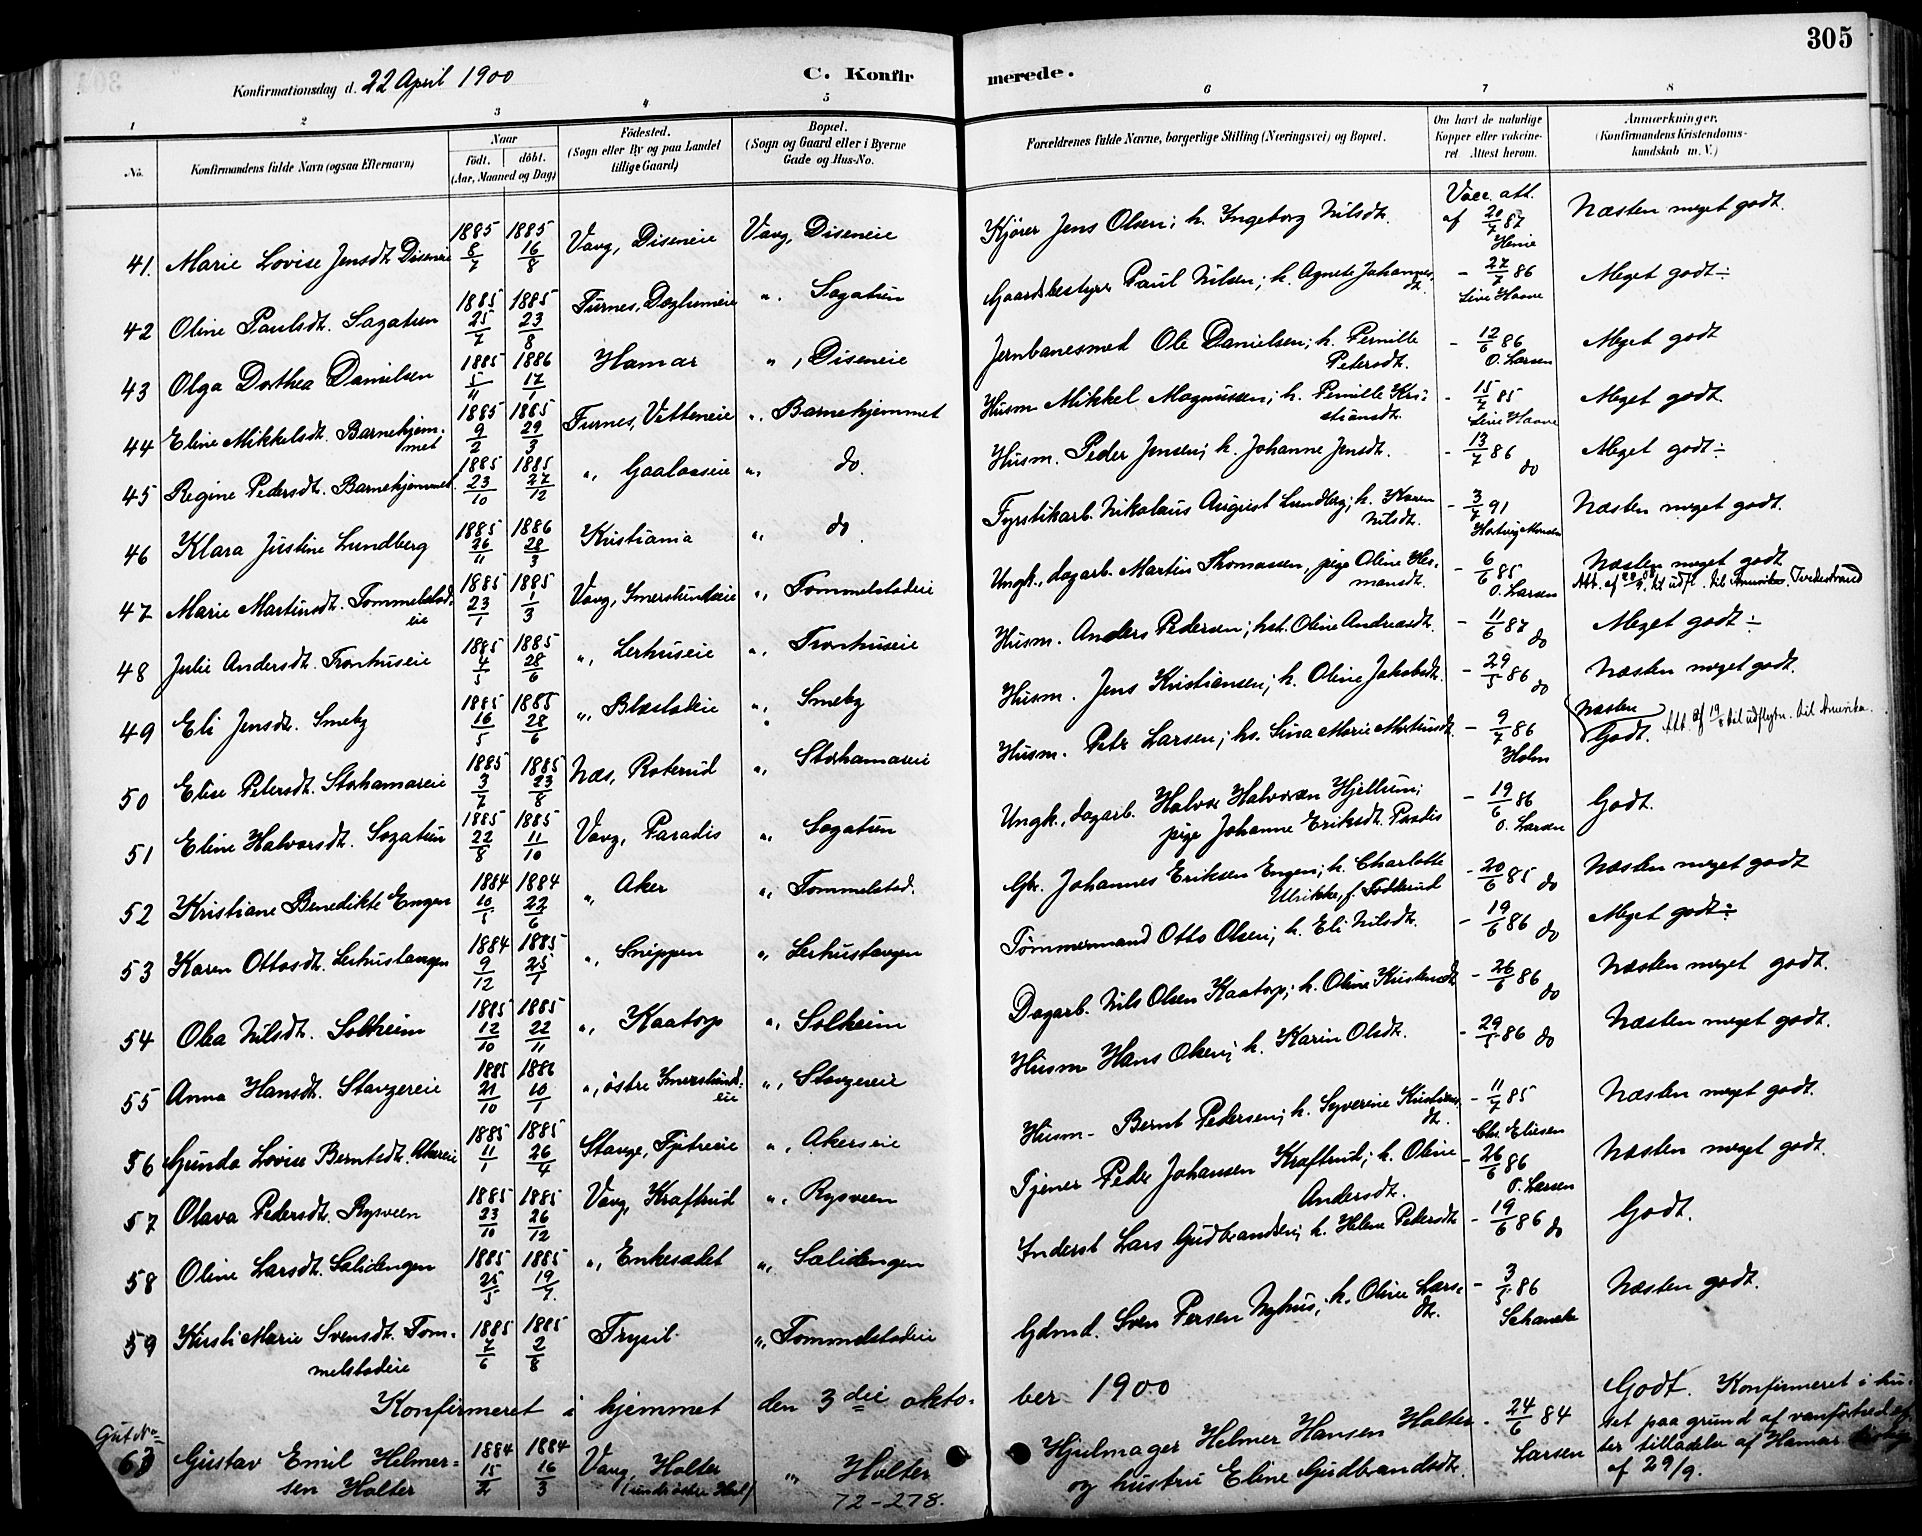 305
Konfirmationsdag d. 22 April 1900
C. Konfirmerede.
1 2 3 4 5 6 7 8
No. Konfirmandens fulde Navn (ogsaa Efternavn) Naar født. døbt. (Aar, Maaned og Dag) Fødested. (Sogn eller By og paa Landet tillige Gaard) Bopæl. (Sogn og Gaard eller i Byerne Gade og Hus-No. Forældrenes fulde Navne, borgerlige Stilling (Næringsvei) og Bopæl. Om havt de naturlige Kopper eller vaccineret Attest herom. Anmærkninger. (Konfirmandens Kristendomskundskab m. V.)
41. Marie Lovise Jensdt. Diseneie 1885 8/7 1885 16/8 Vang, Diseneie Vang, Diseneie Kjører Jens Olsen; h. Ingeborg Nilsdt. Vacc. att. af 20/7 87 Næsten meget godt.
42 Oline Paulsdt. Sagatun 1885 25/7 1885 23/8 Furnes, Doglumeie " Sagatun Gaardsbestyrer Paul Nilsen; h. Agnete Johannesdt. - 27/7 86 Live Haave Meget godt ÷
43 Olga Dorthea Danielsen 1885 5/11 1886 17/1 Hamar ", Diseneie Jernbanesmed Ole Danielsen; h. Pernille Petersdt. - 12/6 86 O. Larsen Meget godt
44 Eline Mikkelsdt. Barnehjemmet 1885 9/2 1885 29/3 Furnes, Vitteneie ", Barnehjemmet Husm Mikkel Magnussen; h. Pernille Kristiansdt. - 15/7 85 Live Haave Meget godt.
45 Regine Pedersdt. Barnehjemmet 1885 23/10 1885 27/12 ", Gaalaaseie " do. Husm. Peder Jensen; h. Johanne Jensdt. - 13/7 86 do Meget godt ÷
46 Klara Justine Lundberg 1885 26/11 1886 28/3 Kristiania " do. Fyrstikarb. Nikolaus August Lundberg; h. Karen Nilsdt. - 3/7 91 Næsten meget godt.
47 Marie Martinsdt. Tommelstadeie 1885 23/1 1885 1/3 Vang, Smerstuneie ", Tommelstadeie Ungk., dagarb. Martin Thomassen, pige Oline Hermansdt. - 6/6 85 O. Larsen Næsten meget godt Att. af til udfl. til Tvedestrand
48 Julie Andersdt. Tronhuseie 1885 4/5 1885 28/6 ", Lerhuseie ", Tronhuseie Husm. Anders Pedersen; hst. Oline Andreasdt. - 11/6 87 do Meget godt ÷
49 Eli Jensdt. Smeby 1885 16/5 1885 28/6 ", Blæstadeie ", Smeby Husm. Jens Kristiansen; h. Oline Jakobsdt. - 29/5 86 do Næsten meget godt.
50 Elise Petersdt. Storhamareie 1885 3/7 1885 23/8 Næs, Roterud ", Storhamareie Husm. Petr Larsen; hs. Sina Marie Martinsdt. - 9/7 86 Holm Næsten Godt. Att. af 19/8 til udflytn. til Amerika.
51 Eline Halvorsdt. Sagatun 1885 22/8 1885 11/10 Vang, Paradis ", Sagatun Ungk., dagarb. Halvor Halvorsen Hjellum; pige Johanne Eriksdt. Paradis - 19/6 86 O. Larsen Godt.
52 Kristiane Benedikte Engen 1884 10/5 1884 22/6 " Aker ", Tommelstad. Gbr. Johannes Eriksen Engen; h. Charlotte Ulrikke, f. Fodderud - 20/6 85 do Næsten meget godt
53 Karen Ottosdt. Lerhustangen 1884 9/12 1885 25/1 ", Snippen ", Lerhustangen Tømmermand Otto Olsen; h. Eli Nilsdt. - 19/6 86 do Meget godt ÷
54 Olea Nilsdt. Solheim 1885 12/10 1885 22/11 ", Kaatorp ", Solheim Dagarb. Nils Olsen Kaatorp; h. Oline Kristensdt. - 26/6 86 do Næsten meget godt.
55 Anna Hansdt. Stangereie 1885 21/10 1886 10/1 ", østre Smerstundeie ", Stangereie Husm Hans Olsen; h. Karin Olsdt. - 29/5 86 do Næsten meget godt.
56 Gunda Lovise Berntsdt. Akereie 1885 11/1 1885 26/4 Stange, Fjetreeie ", Akerseie Husm- Bernt Pedersen; h. Syverine Kristiansdt. - 11/7 85 Chr. Eliesen Næsten meget godt.
57 Olava Pedersdt. Rysveen 1885 23/10 1885 26/12 Vang, Kraftrud ", Rysveen Tjener Peder Johansen Kraftrud; h. Oline Andersdt. - 26/6 86 O. Larsen Næsten meget godt.
58 Oline Larsdt. Sælidengen 1885 25/5 1885 19/7. ", Enkesædet ", Sælidengen Inderst Lars Gudbrandsen; h. Helene Pedersdt - 19/6 86 do Godt.
59 Kirsti Marie Svensdt. Tommelstadeie 1885 7/6 1885 2/8 Trysil ", Tommelstadeie Gdmd. Sven Persen Nyhus; h. Oline Larsdt. - 3/5 86 Schanche Næsten godt.
Konfirmeret i hjemmet den 3die oktober 1900
Gut No 63 Gustav Emil Helmersen Holter 1884 15/2 1884 16/3 Vang, Holter " Holter Hjulmager Helmer Hansen Holter og hustru Eline Gudbrandsdt. - 24/6 84 Larsen Godt. Konfirmeret i huset paa grund af vanførhed efter tilladelse af Hamar af 29/9.
72-278.